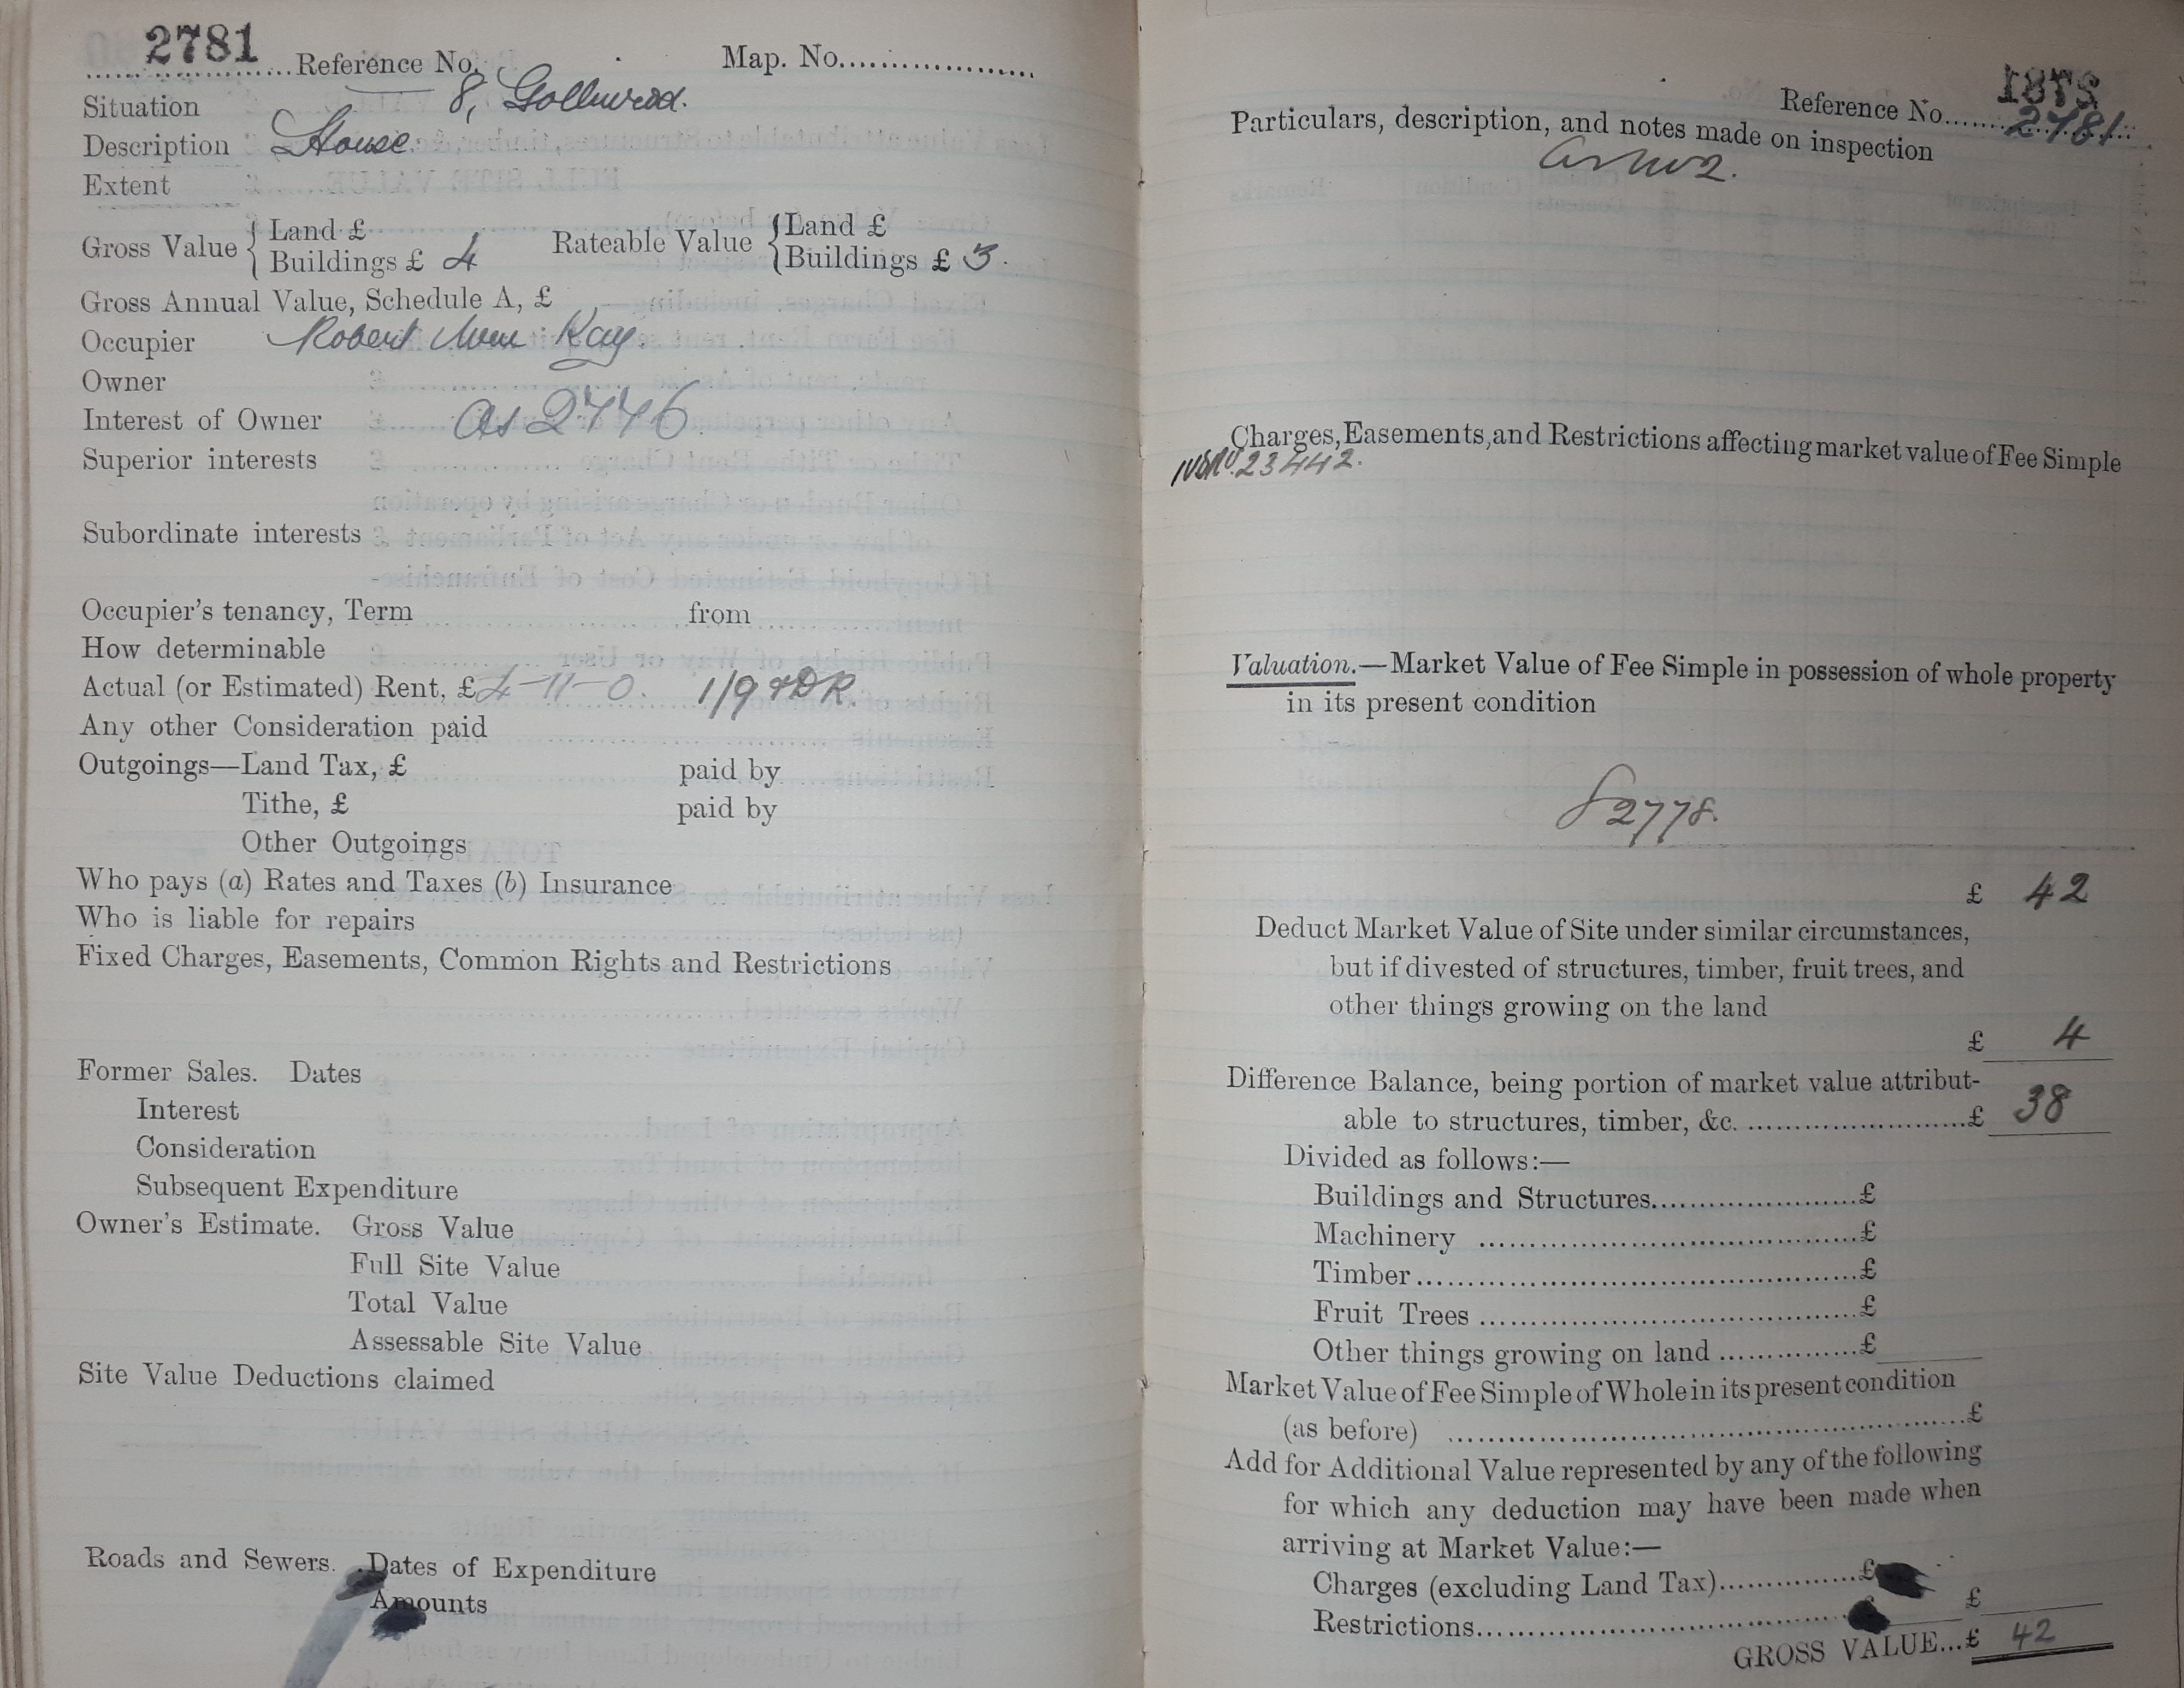 2781 Reference No. Map. No.
Situation 8, Gollinrod.
Description House.
Extent
Gross Value { Land £ Rateable Value { Land £
Buildings £ 4 Buildings £ 3.
Gross Annual Value, Schedule A, £
Occupier Robert Wm Kay.
Owner
Interest of Owner as 2776.
Superior interests
Subordinate interests
Occupier's tenancy, Term from
How determinable
Actual (or Estimated) Rent, £ 4-11-0. 1/9
Any other Consideration paid
Outgoings—Land Tax, £ paid by
Tithe, £ paid by
Other Outgoings
Who pays (a) Rates and Taxes (b) Insurance
Who is liable for repairs
Fixed Charges, Easements, Common Rights and Restrictions
Former Sales. Dates
Interest
Consideration
Subsequent Expenditure
Owner's Estimate. Gross Value
Full Site Value
Total Value
Assessable Site Value
Site Value Deductions claimed
Roads and Sewers. Dates of Expenditure
Amounts
Reference No. 2781
Particulars, description, and notes made on inspection
Charges, Easements, and Restrictions affecting market value of Fee Simple
23442.
Valuation.—Market Value of Fee Simple in possession of whole property
in its present condition
2778.
£ 42
Deduct Market Value of Site under similar circumstances,
but if divested of structures, timber, fruit trees, and
other things growing on the land
£ 4
Difference Balance, being portion of market value attribut-
able to structures, timber, &c. £ 38
Divided as follows:—
Buildings and Structures £
Machinery £
Timber £
Fruit Trees £
Other things growing on land £
Market Value of Fee Simple of Whole in its present condition
(as before) £
Add for Additional Value represented by any of the following
for which any deduction may have been made when
arriving at Market Value:—
Charges (excluding Land Tax) £
Restrictions £ £
GROSS VALUE...£ 42